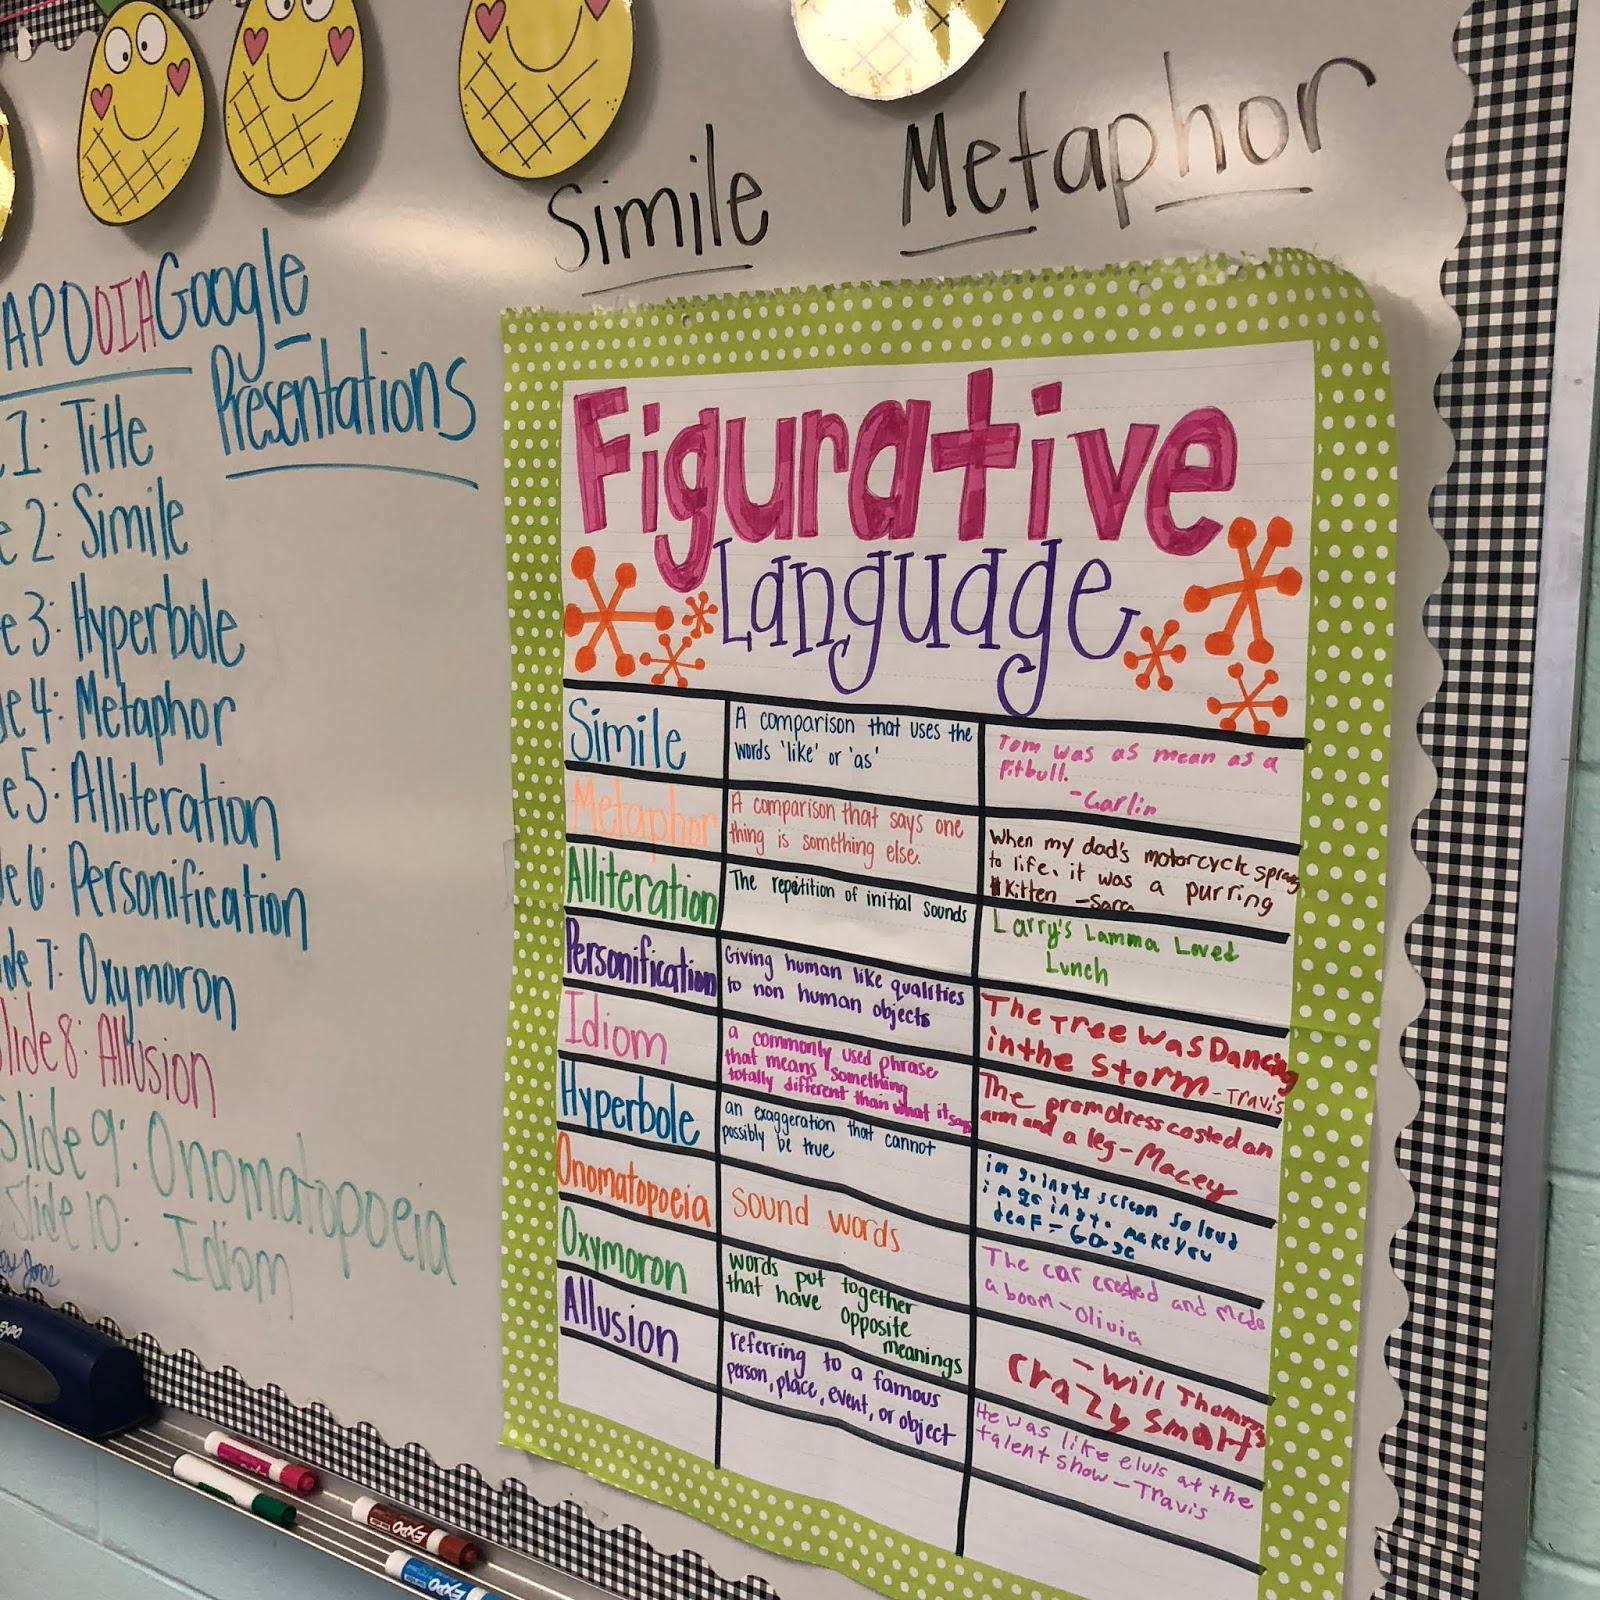 Simile Metaphor
APOOIA Google
Presentations
1: Title
e 2: Simile
e 3: Hyperbole
de 4: Metaphor
e 5: Alliteration
de 6: Personification
lide 7: Oxymoron
Slide 8: Allusion
Slide 9: Onomatopoeia
Slide 10: Idiom
Figurative
Language
Simile
A comparison that uses the
words 'like' or 'as'
Tom was as mean as a
Pitbull.
-Carlin
Metaphor
A comparison that says one
thing is something else.
When my dad's motorcycle sprang
to life, it was a purring
Kitten -Sara
Alliteration
The repitition of initial sounds
Larry's Lamma Loved
Lunch
Personification
Giving human like qualities
to non human objects
The Tree Was Dancing
in the Storm -Travis
Idiom
a commonly used phrase
that means something
totally different than what it says
The prom dress costed an
arm and a leg -Macey
Hyperbole
an exaggeration that cannot
possibly be true
scream so loud
make you
deaf -
Onomatopoeia
sound words
The car crashed and made
a boom -Olivia
Oxymoron
words put together
that have opposite
meanings
-Will Thomas
Crazy Smart
Allusion
referring to a famous
person, place, event, or object
He was like elvis at the
talent show -Travis
EXPO
EXPO
EXPO